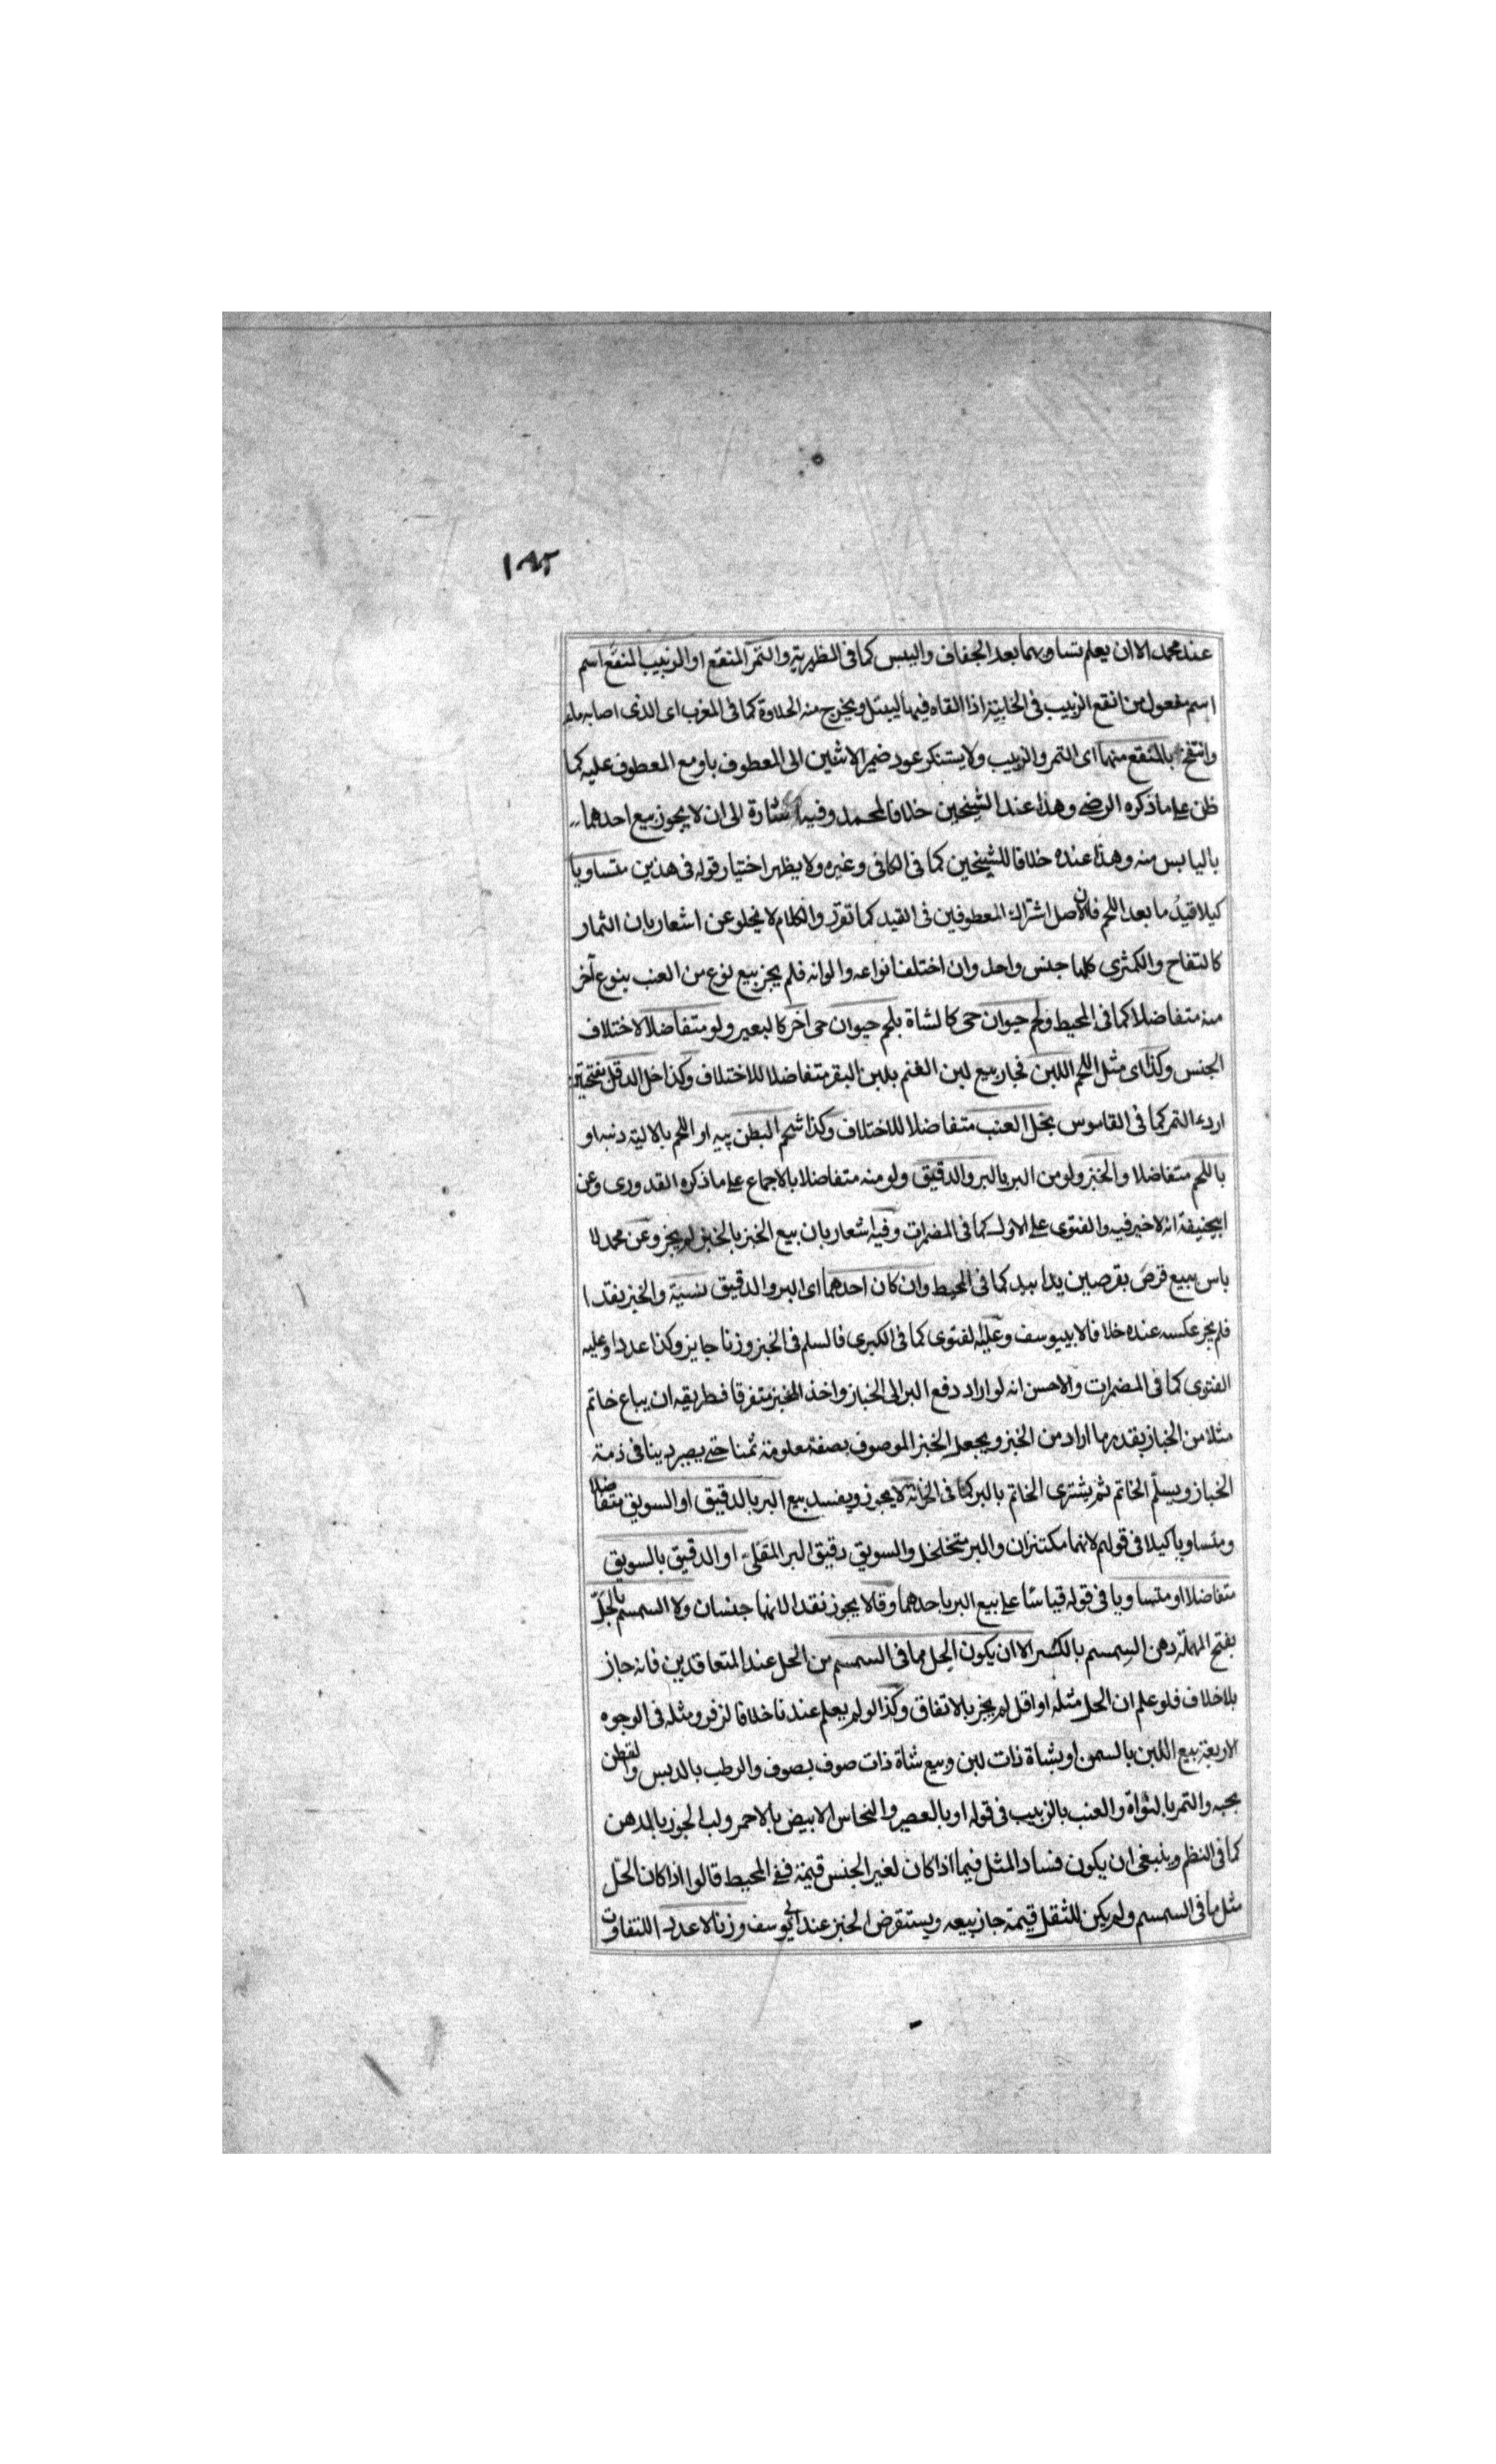 ١٨٢
عند محمد الا ان يعلم تساويهما بعد الجفاف واليبس كما فى الظهيرية والتمر المنقع او الزبيب المنقع اسم
اسم مفعول من انقع الزبيب فى الخابية اذا القاه فيها ليبتل ويخرج منه الحلاوة كما فى المغرب اى الذى اصابه ماء
وانتفخ بالمنقع منهما اى التمر والزبيب ولا يستنكر عود ضمير الاثنين الى المعطوف باو مع المعطوف عليه كما
ظن على ما ذكره الرضى وهذا عند الشيخين خلافا لمحمد وفيه اشارة الى ان لا يجوز بيع احدهما
باليابس منه وهذا عنده خلافا للشيخين كما فى الكافى وغيره ولا يظهر اختيار قوله فى هذين متساويا
كيلا قيد ما بعد اللحم فان الاصل اشتراك المعطوفين فى القيد كما تقرر والكلام لا يخلو عن اشعار بان الثمار
كالتفاح والكمثرى كلها جنس واحد وان اختلف انواعه والوانه فلم يجز بيع نوع من العنب بنوع آخر
منه متفاضلا كما فى المحيط ولحم حيوان حى كالشاة بلحم حيوان حى آخر كالبعير ولو متفاضلا لاختلاف
الجنس وكذا اى مثل اللحم اللبن فجاز بيع لبن الغنم بلبن البقر متفاضلا للاختلاف وكذا خل الدقل بفتحتين
اردء التمر كما فى القاموس بخل العنب متفاضلا للاختلاف وكذا شحم البطن پيه او اللحم بالالية دنبه او
باللحم متفاضلا والخبز ولو من البر بالبر والدقيق ولو منه متفاضلا بالاجماع على ما ذكره القدورى وعن
ابيحنيفة انه لا خير فيه والفتوى على الاول كما فى المضمرات وفيه اشعار بان بيع الخبز بالخبز لم يجز وعن محمد لا
باس ببيع قرص بقرصين يدا بيد كما فى المحيط وان كان احدهما اى البر والدقيق نسية والخبز نقدا
فلم يجز عكسه عنده خلافا لابييوسف وعليه الفتوى كما فى الكبرى فالسلم فى الخبز وزنا جايز وكذا عددا وعليه
الفتوى كما فى المضمرات والاحسن انه لو اراد دفع البر الى الخباز واخذ الخبز متفرقا فطريقه ان يباع خاتم
مثلا من الخباز بقدر ما اراد من الخبز ويجعل الخبز الموصوف بصفة معلومة ثمنا حتى يصير دينا فى ذمة
الخباز ويسلم الخاتم ثم يشترى الخاتم بالبر كما فى الخزانة لا يجوز ويفسد بيع البر بالدقيق او السويق متفاضلا
ومتساويا كيلا فى قولهم لانهما مكتنزان والبر متخلخل والسويق دقيق البر المقلى او الدقيق بالسويق
متفاضلا او متساويا فى قوله قياسا على بيع البر باحدهما وقالا يجوز نقدا لانهما جنسان ولا السمسم بالحل
بفتح المهملة دهن السمسم بالكسر الا ان يكون الحل مما فى السمسم من الحل عند المتعاقدين فانه جاز
بلا خلاف فلو علم ان الحل مثله او اقل لم يجز بالاتفاق وكذا لو لم يعلم عندنا خلافا لزفر ومثله فى الوجوه
الاربعة بيع اللبن بالسمن او بشاة ذات لبن وبيع شاة ذات صوف بصوف والرطب بالدبس والقطن
بحبه والتمر بالنواة والعنب بالزبيب فى قوله او بالعصير والنحاس الابيض بالاحمر ولب الجوز بالدهن
كما فى النظم وينبغى ان يكون فساد المثل فيما اذا كان لغير الجنس قيمة ففى المحيط قالوا اذا كان الحل
مثل ما فى السمسم ولم يكن للثقل قيمة جاز بيعه ويستقرض الخبز عند ابى يوسف وزنا لا عددا للتفاوت